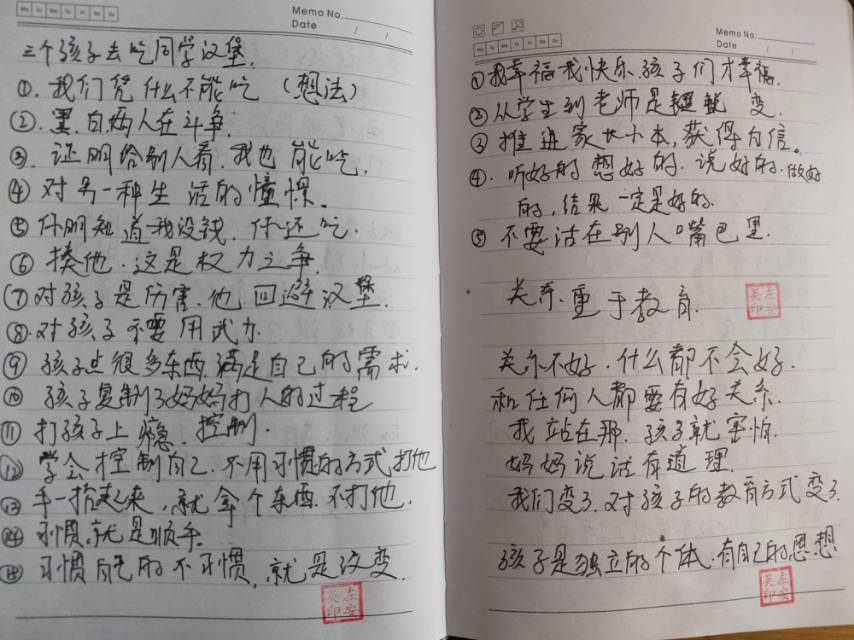 Memo No.
Date / /
三个孩子去吃同学汉堡.
①.我们凭什么不能吃 (想法)
②.黑.白两人在斗争.
③.证明给别人看.我也能吃.
④对另一种生活的憧憬。
⑤你明知道我没钱.你还吃.
⑥揍他.这是权力之争.
⑦对孩子是伤害.他回避汉堡.
⑧.对孩子不要用武力.
⑨孩子点很多东西.满足自己的需求.
⑩孩子复制了妈妈打人的过程
⑪打孩子上瘾.控制.
⑫学会控制自己.不用习惯的方式打他
⑬手一抬起来,就拿个东西.不打他.
⑭习惯.就是顺手.
⑮习惯自己的不习惯,就是改变.
左安英印
Memo No.
Mo Tu We Th Fr Sa Su
Date / /
①我幸福我快乐.孩子们才幸福.
②从学生到老师是蜕变.
③推进家长小本,获得自信。
④.听好的.想好的.说好的.做好
的,结果一定是好的.
⑤不要活在别人嘴巴里.
关系.重于教育.
左安英印
关系不好.什么都不会好.
和任何人都要有好关系.
我站在那.孩子就害怕.
妈妈说话有道理.
我们变了.对孩子的教育方式变了.
孩子是独立的个体.有自己的思想
左安英印